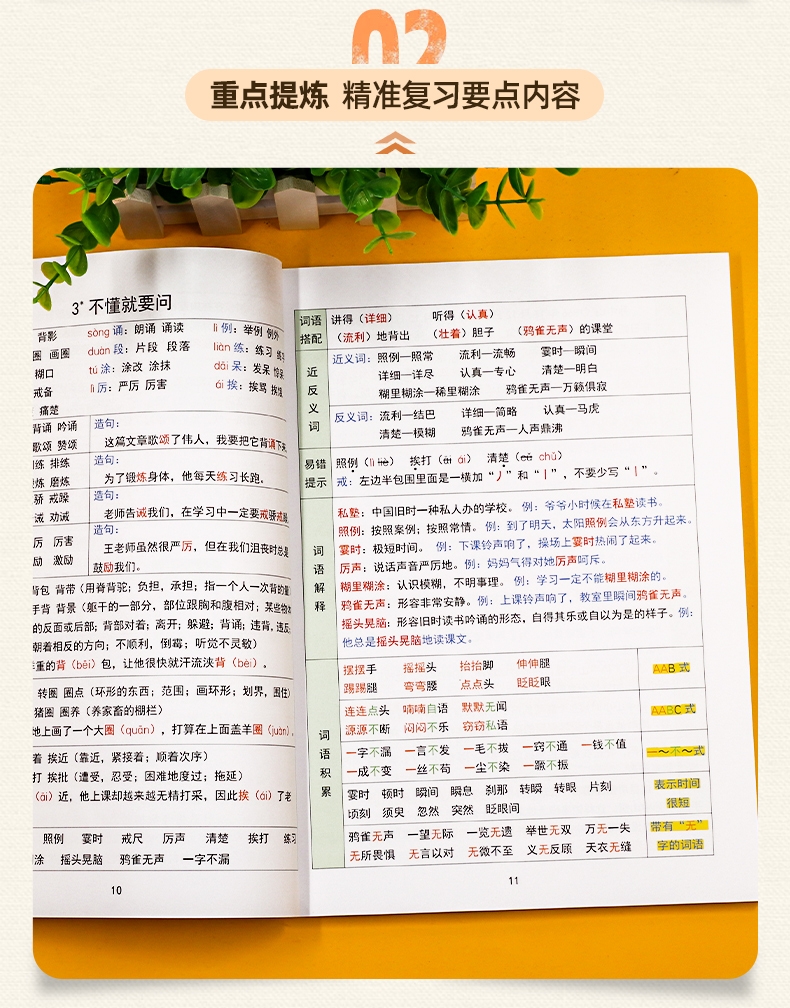 02
重点提炼 精准复习要点内容
3* 不懂就要问
背影 sòng 诵：朗诵 诵读 lì 例：举例 例外
圈 画圈 duàn 段：片段 段落 liàn 练：练习
糊口 tú 涂：涂改 涂抹 dāi 呆：发呆
戒备 lì 厉：严厉 厉害 ái 挨：挨骂
痛楚
背诵 吟诵 造句：
歌颂 赞颂 这篇文章歌颂了伟人，我要把它背诵下来
练 排练 造句：
炼 磨炼 为了锻炼身体，他每天练习长跑。
骄 戒躁 造句：
诫 劝诫 老师告诫我们，在学习中一定要戒骄戒
厉 厉害 造句：
励 激励 王老师虽然很严厉，但在我们沮丧时总是
鼓励我们。
背包 背带（用脊背驼；负担，承担；指一个人一次背的量
手背 背景（躯干的一部分，部位跟胸和腹相对；某些物体
的反面或后部；背部对着；离开；躲避；背诵；违背，违反；
朝着相反的方向；不顺利，倒霉；听觉不灵敏）
重的背（bēi）包，让他很快就汗流浃背（bèi）。
转圈 圈点（环形的东西；范围；画环形；划界，围住）
猪圈 圈养（养家畜的棚栏）
地上画了一个大圈（quān），打算在上面盖羊圈（juàn）
着 挨近（靠近，紧接着；顺着次序）
打 挨批（遭受，忍受；困难地度过；拖延）
（āi）近，他上课却越来越无精打采，因此挨（ái）了老
照例 霎时 戒尺 厉声 清楚 挨打 练
涂 摇头晃脑 鸦雀无声 一字不漏
10
词语搭配
讲得（详细） 听得（认真）
（流利）地背出 （壮着）胆子 （鸦雀无声）的课堂
近反义词
近义词：照例—照常 流利—流畅 霎时—瞬间
详细—详尽 认真—专心 清楚—明白
糊里糊涂—稀里糊涂 鸦雀无声—万籁俱寂
反义词：流利—结巴 详细—简略 认真—马虎
清楚—模糊 鸦雀无声—人声鼎沸
易错提示
照例（lì liè） 挨打（āi ái） 清楚（cǔ chǔ）
戒：左边半包围里面是一横加“丿”和“丨”，不要少写“丨”。
词语解释
私塾：中国旧时一种私人办的学校。例：爷爷小时候在私塾读书。
照例：按照案例；按照常情。例：到了明天，太阳照例会从东方升起来。
霎时：极短时间。例：下课铃声响了，操场上霎时热闹了起来。
厉声：说话声音严厉地。例：妈妈气得对她厉声呵斥。
糊里糊涂：认识模糊，不明事理。例：学习一定不能糊里糊涂的。
鸦雀无声：形容非常安静。例：上课铃声响了，教室里瞬间鸦雀无声。
摇头晃脑：形容旧时读书吟诵的形态，自得其乐或自以为是的样子。例：
他总是摇头晃脑地读课文。
词语积累
摆摆手 摇摇头 抬抬脚 伸伸腿
踢踢腿 弯弯腰 点点头 眨眨眼
AAB 式
连连点头 喃喃自语 默默无闻
源源不断 闷闷不乐 窃窃私语
AABC 式
一字不漏 一言不发 一毛不拔 一窍不通 一钱不值
一成不变 一丝不苟 一尘不染 一蹶不振
一～不～式
霎时 顿时 瞬间 瞬息 刹那 转瞬 转眼 片刻
顷刻 须臾 忽然 突然 眨眼间
表示时间
很短
鸦雀无声 一望无际 一览无遗 举世无双 万无一失
无所畏惧 无言以对 无微不至 义无反顾 天衣无缝
带有“无”
字的词语
11